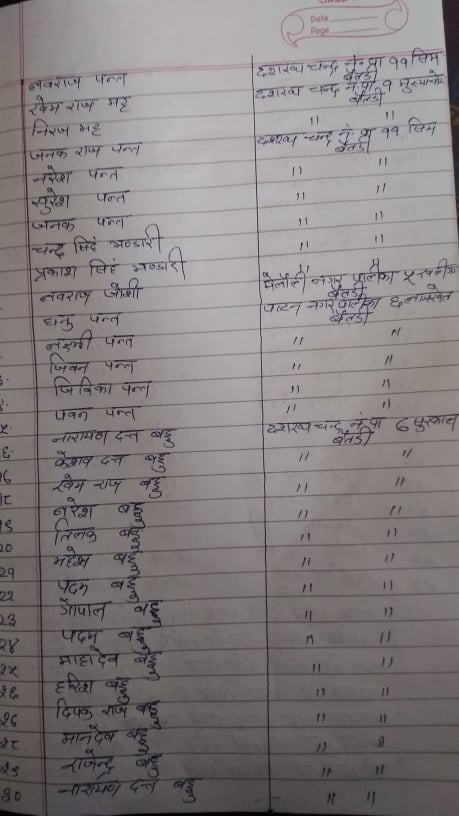 Date
Page
नवराज पन्त दशरथ चन्द न.पा ११ खिम
बैतडी
खेम राज भट्ट दशरथ चन्द न.पा १
बैतडी
निराज भट्ट " "
जनक राज पन्त दशरथ चन्द न.पा ११ खिम
बैतडी
नरेश पन्त " "
सुरेश पन्त " "
जनक पन्त " "
चन्द्र सिहं भण्डारी " "
प्रकाश सिहं भण्डारी " "
नवराज जोशी मेलौली नगर पालिका
बैतडी
धनु पन्त पाटन नगर पालिका ६
बैतडी
लक्ष्मी पन्त " "
जिवन पन्त " "
जिविका पन्त " "
पवन पन्त " "
नारायण दत्त बडु दशरथ चन्द न.पा ८
बैतडी
केशव दत्त बडु " "
१७ खेम राज बडु " "
१८ नरेश बडु " "
१९ तिलक बडु " "
२० महेश बडु " "
२१ पदम बडु " "
२२ गोपाल बडु " "
२३ पदम बडु " "
२४ माहादेव बडु " "
२५ हरिश बडु " "
२६ दिपक राज बडु " "
२७ मानदेव बडु " "
२८ राजेन्द्र बडु " "
२९ नारायण दत्त बडु " "
३०